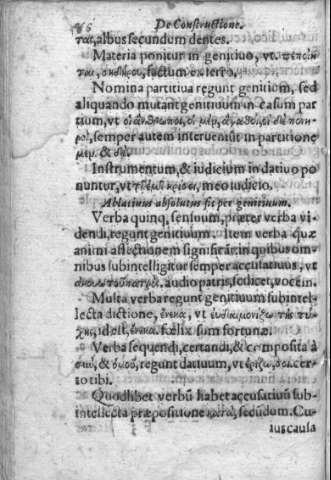 86 De Constructione.
τας, albus secundum dentes.
Materia ponitur in genitiuo, vt. πεποίη
ται, σιδήρου, factum ex ferro.
Nomina partitiua regunt genitiuũ, sed
aliquando mutant genitiuum in casum par
tium, vt οἱ ἄνθρωποι, οἱ μὲν, ἀγαθοί, οἱ δὲ πονη
ροὶ, semper autem interuenit in partitione
μὲν, & δὲ.
Instrumentum, & iudicium in datiuo po
nuntur, vt τῇ ἐμῇ κρίσει, meo iudicio.
Ablatiuus absolutus fit per genitiuum.
Verba quinq, sensuum, præter verba vi-
dendi, regunt genitiuum. Item verba quæ
animi affectionem significãt: in quibus om-
nibus subintelligitur semper accusatiuus, vt
audio patris, scilicet, vocẽ in.
Multa verba regunt genitiuum subintel-
lecta dictione, ἕνεκα, vt εὐδαιμονίζω τῆς τύ-
χης, id est, ἕνεκα. fœlix sum fortunæ.
Verba sequendi, certandi, & composita à
σὺν, & ὁμοῦ, regunt datiuum, vt ἐρίζω, σοι. cer-
to tibi.
Quodlibet verbũ habet accusatiuũ sub-
intellecta præpositione κατὰ, secũdum. Cu-
ius causa